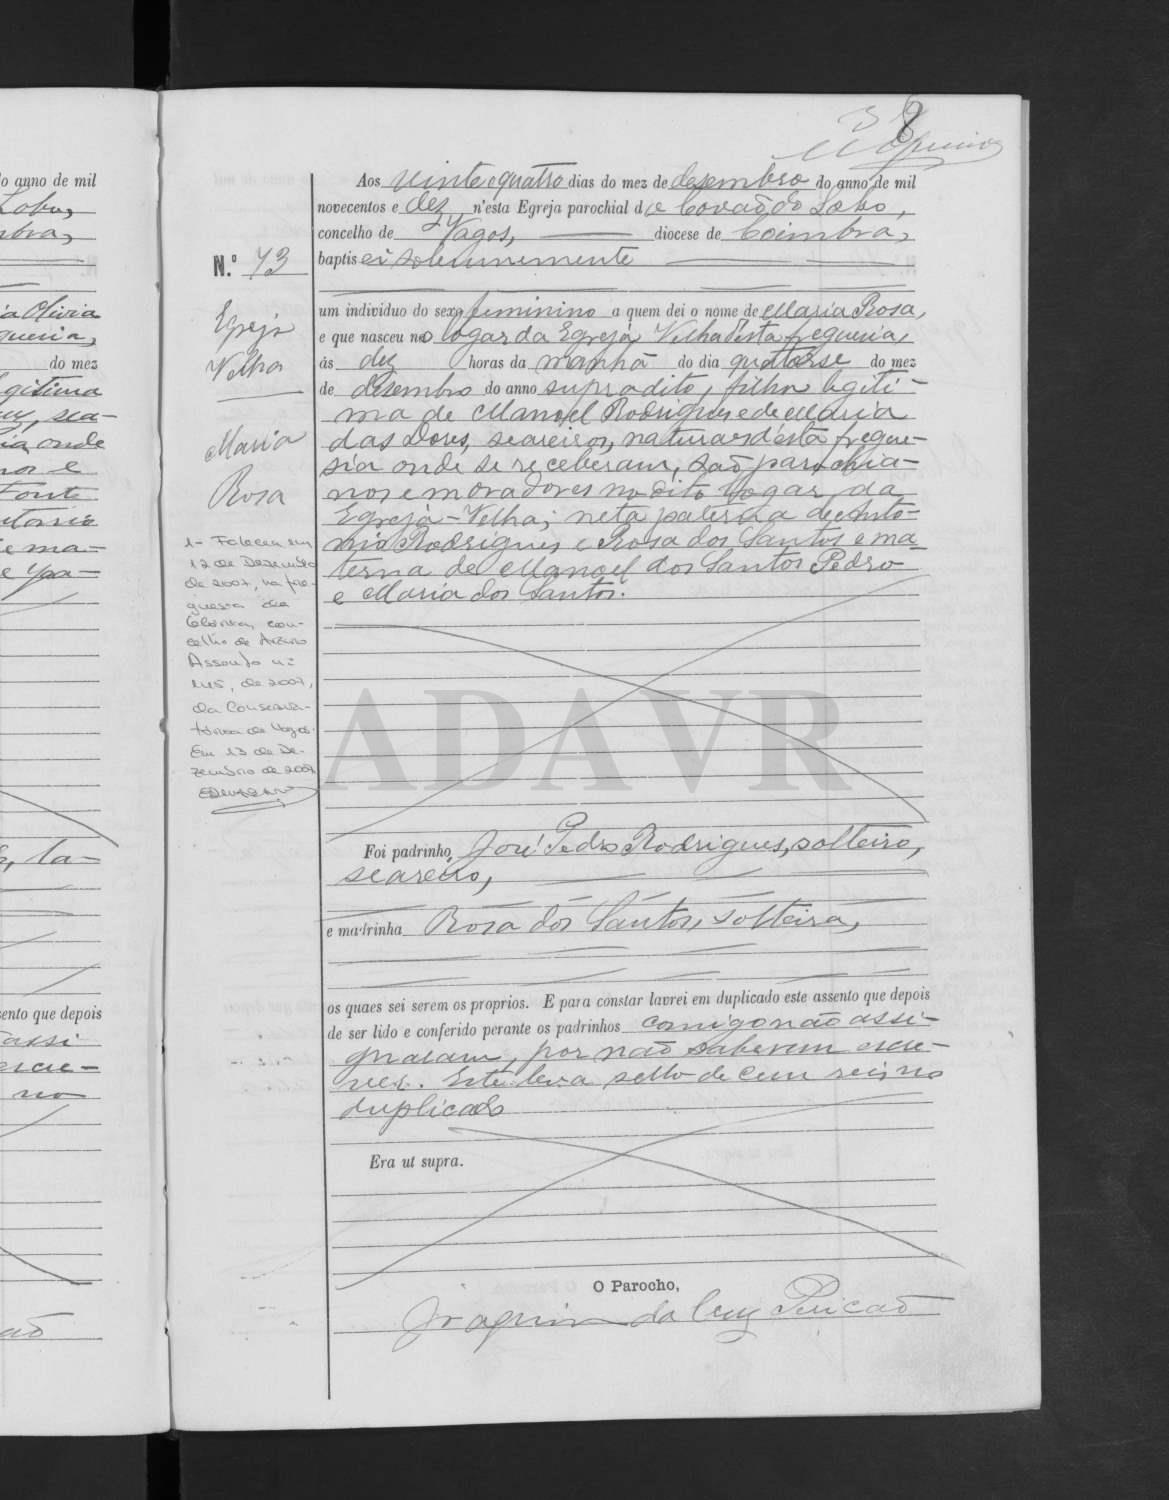 38
do anno de mil
Lobo,
do mez
gitima
onde
e
Fonte
ma-
e pa-
ta-
sento que depois
assi
escre-
no
N.º 73
Egreja
Velha
Maria
Rosa
1- Faleceu em
12 de Dezembro
de 2007, na fre-
guesia da
Glória, con-
celho de Aveiro
Assento nº
de 2007,
da Conserva-
tória de Vagos.
Em 13 de De-
zembro de 2007
Aos vinte e quatro dias do mez de desembro do anno de mil
novecentos e dez n'esta Egreja parochial de Covão do Lobo,
concelho de Vagos, diocese de Coimbra,
baptisei solemnemente
um individuo do sexo feminino a quem dei o nome de Maria Rosa,
e que nasceu no logar da Egreja Velha d'esta freguesia,
ás dez horas da manhã do dia quatorse do mez
de desembro do anno supradito, filha legiti-
ma de Manoel Rodrigues e de Maria
das Dores, seareiros, naturaes d'esta fregue-
sia onde se receberam, são parochia-
nos e moradores no dito logar da
Egreja-Velha; neta paterna de Anto-
nio Rodrigues e Rosa dos Santos e ma-
terna de Manoel dos Santos Pedro
e Maria dos Santos.
ADAVR
Foi padrinho, José Pedro Rodrigues, solteiro,
seareiro,
e madrinha Rosa dos Santos, solteira,
os quaes sei serem os proprios. E para constar lavrei em duplicado este assento que depois
de ser lido e conferido perante os padrinhos comigo não assi-
gnaram, por não saberem escre-
ver. Este leva sello de cem reis no
duplicado
Era ut supra.
O Parocho,
Joaquim da Cruz Pericão